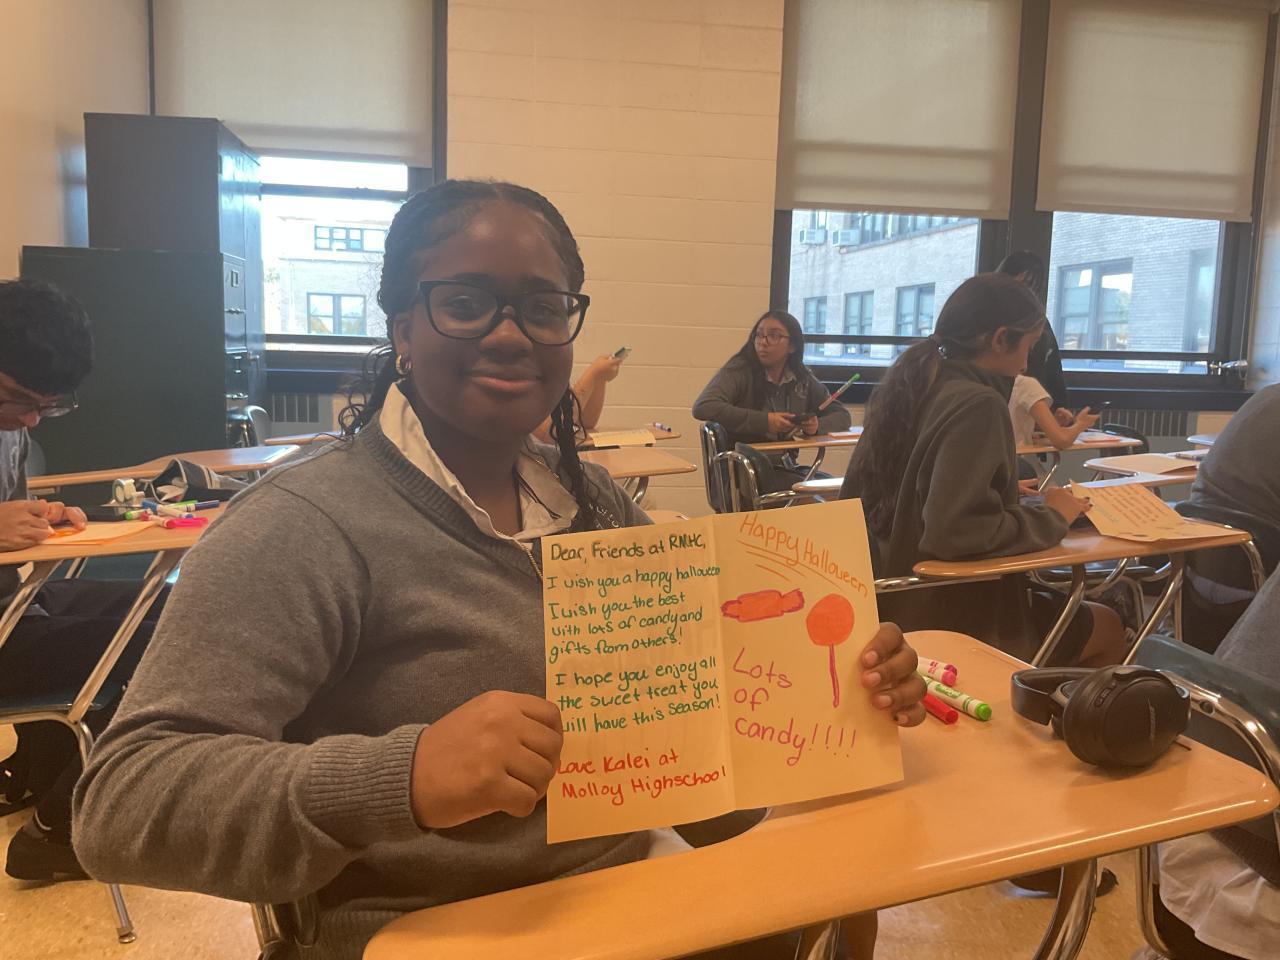 Dear, Friends at RMHC,
I wish you a happy halloween
I wish you the best
with lots of candy and
gifts from others!
I hope you enjoy all
the sweet treat you
will have this season!
Love Kalei at
Molloy Highschool
Happy Halloween
Lots
of
candy!!!!